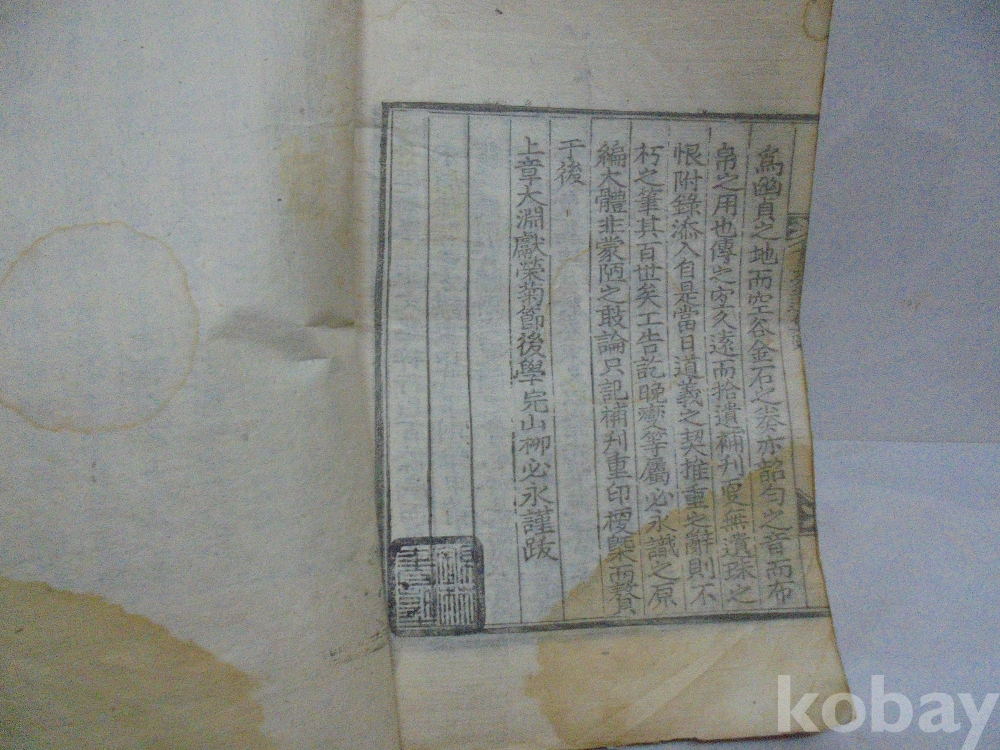 爲幽貞之地而空谷金石之奏亦韶勻之音而布
帛之用也傳之寖久遠而拾遺補刋更無遺珠之
恨附錄添入自是當日道義之契推重之辭則不
朽之筆其百世矣工告訖晩燮等屬必永識之原
編大體非蒙陋之敢論只記補刋重印梗槩而贅
于後
上章大淵獻榮菊節後學完山柳必永謹跋
kobay